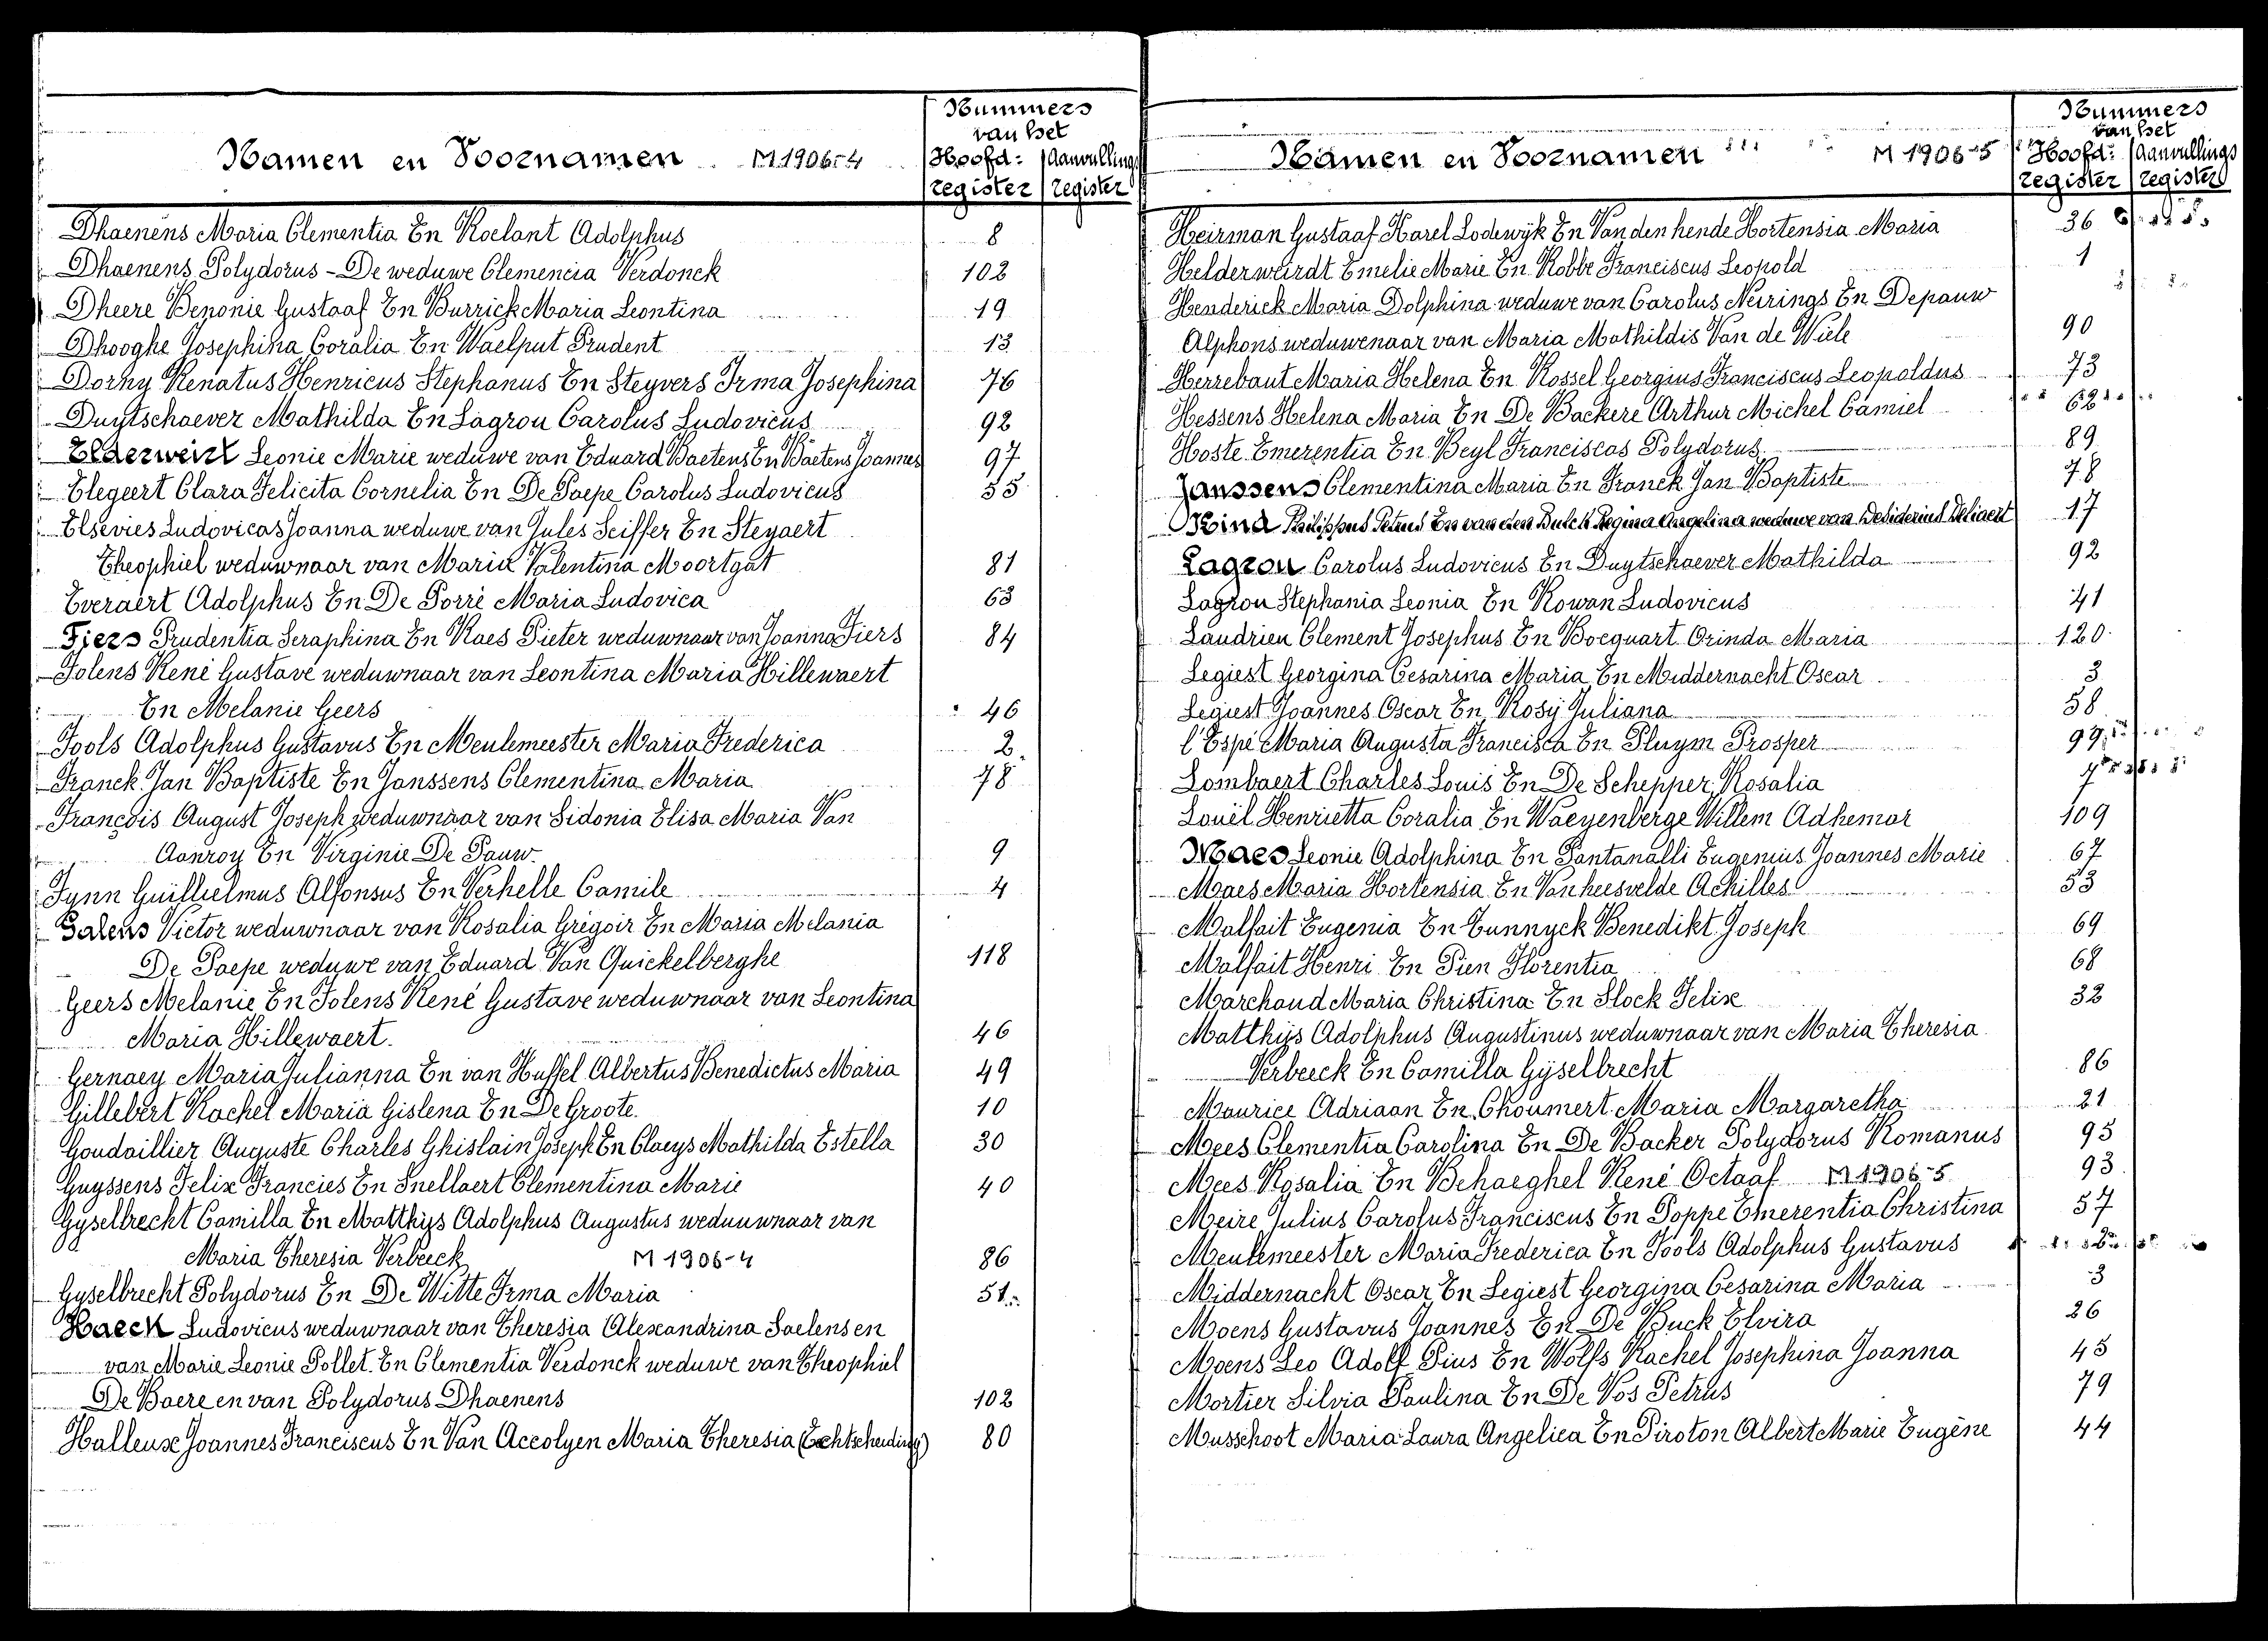 Namen en Voornamen M1906-4
Nummers
van het
Hoofd- Aanvullings
register register
Dhaenens Maria Clementia En Roelant Adolphus 8
Dhaenens Polydorus - De weduwe Clemencia Verdonck 102
Dheere Benonie Gustaaf En Burrick Maria Leontina 19
Dhooghe Josephina Coralia En Waelput Prudent 13
Dorny Renatus Henricus Stephanus En Steyvers Irma Josephina 76
Duytschaever Mathilda En Lagrou Carolus Ludovicus 92
Elderweirt Leonie Marie weduwe van Eduard Baetens En Baetens Joannes 97
Elegeert Clara Felicita Cornelia En De Paepe Carolus Ludovicus 55
Elsevies Ludovicas Joanna weduwe van Jules Seiffer En Steyaert
Theophiel weduwnaar van Maria Valentina Moortgat 81
Everaert Adolphus En De Porré Maria Ludovica 63
Fiers Prudentia Seraphina En Raes Pieter weduwnaar van Joanna Fiers 84
Folens René Gustave weduwnaar van Leontina Maria Hillewaert
En Melanie Geers 46
Fools Adolphus Gustavus En Meulemeester Maria Frederica 2
Franck Jan Baptiste En Janssens Clementina Maria 78
François August Joseph weduwnaar van Sidonia Elisa Maria Van
Aanroy En Virginie De Pauw 9
Fynn Guillielmus Alfonsus En Verhelle Camile 4
Galens Victor weduwnaar van Rosalia Grégoir En Maria Melania
De Paepe weduwe van Eduard Van Quickelberghe 118
Geers Melanie En Folens René Gustave weduwnaar van Leontina
Maria Hillewaert. 46
Gernaey Maria Julianna En van Huffel Albertus Benedictus Maria 49
Gillebert Rachel Maria Gislena En De Groote. 10
Goudaillier Auguste Charles Ghislain Joseph En Claeys Mathilda Estella 30
Guyssens Felix Francies En Snellaert Clementina Marie 40
Gyselbrecht Camilla En Matthijs Adolphus Augustus weduuwnaar van
Maria Theresia Verbeeck M1906-4 86
Gyselbrecht Polydorus En De Witte Irma Maria 51
Haeck Ludovicus weduwnaar van Theresia Alexandrina Saelens en
van Marie Leonie Pollet En Clementia Verdonck weduwe van Theophiel
De Baere en van Polydorus Dhaenens 102
Halleux Joannes Franciscus En Van Accolyen Maria Theresia (Echtscheiding) 80
Namen en Voornamen M1906-5
Nummers
van het
Hoofd- Aanvullings
register register
Heirman Gustaaf Karel Lodewijk En Van den hende Hortensia Maria 36
Helderweirdt Emelie Marie En Robbe Franciscus Leopold 1
Henderick Maria Dolphina weduwe van Carolus Neirings En Depauw
Alphons weduwenaar van Maria Mathildis Van de Wiele 90
Herrebaut Maria Helena En Rossel Georgius Franciscus Leopoldus 73
Hessens Helena Maria En De Backere Arthur Michel Camiel 62
Hoste Emerentia En Beyl Franciscas Polydorus 89
Janssens Clementina Maria En Franck Jan Baptiste 78
Kind Philippus Petrus En van den Bulck Regina Angelina weduwe van Desiderius Deliaert 17
Lagrou Carolus Ludovicus En Duytschaever Mathilda 92
Lagrou Stephania Leonia En Rowan Ludovicus 41
Laudrieu Clement Josephus En Bocquart Orinda Maria 120
Legiest Georgina Cesarina Maria En Middernacht Oscar 3
Legiest Joannes Oscar En Rosÿ Juliana 58
l'Espé Maria Augusta Francisca En Pluym Prosper 99
Lombaert Charles Louis En De Schepper Rosalia 7
Louël Henrietta Coralia En Waeyenberge Willem Adhemar 109
Maes Leonie Adolphina En Pantanalli Eugenius Joannes Marie 67
Maes Maria Hortensia En Vanheesvelde Achilles 53
Malfait Eugenia En Tunnyck Benedikt Joseph 69
Malfait Henri En Pien Florentia 68
Marchand Maria Christina En Slock Felix 32
Matthijs Adolphus Augustinus weduwnaar van Maria Theresia
Verbeeck En Camilla Gÿselbrecht 86
Maurice Adriaan En Choumert Maria Margaretha 21
Mees Clementia Carolina En De Backer Polydorus Romanus 95
Mees Rosalia En Behaeghel René Octaaf M1906-5 93
Meire Julius Carolus Franciscus En Poppe Emerentia Christina 57
Meulemeester Maria Frederica En Fools Adolphus Gustavus 2
Middernacht Oscar En Legiest Georgina Cesarina Maria 3
Moens Gustavus Joannes En De Buck Elvira 26
Moens Leo Adolf Pius En Wolfs Rachel Josephina Joanna 45
Mortier Silvia Paulina En De Vos Petrus 79
Musschoot Maria Laura Angelica En Piroton Albert Marie Eugène 44